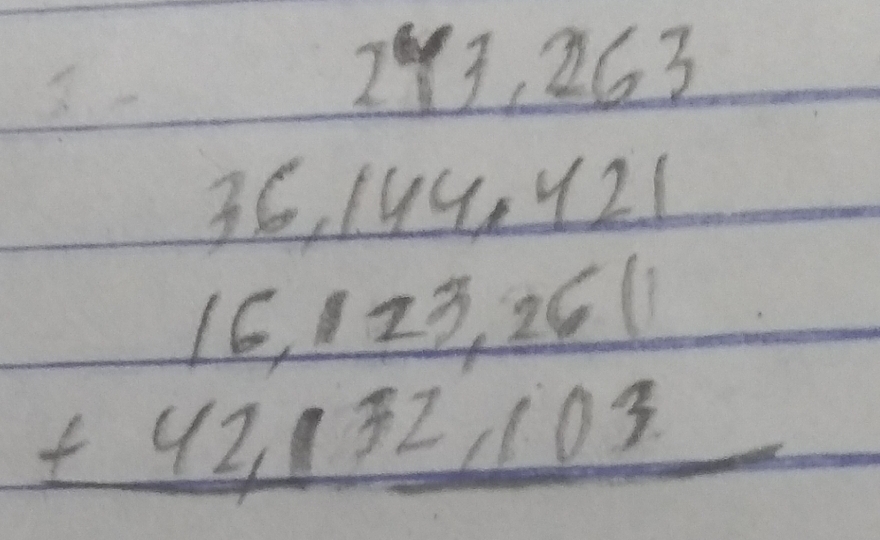 243,263
36,144,421
16,123,261
+ 42,132,103